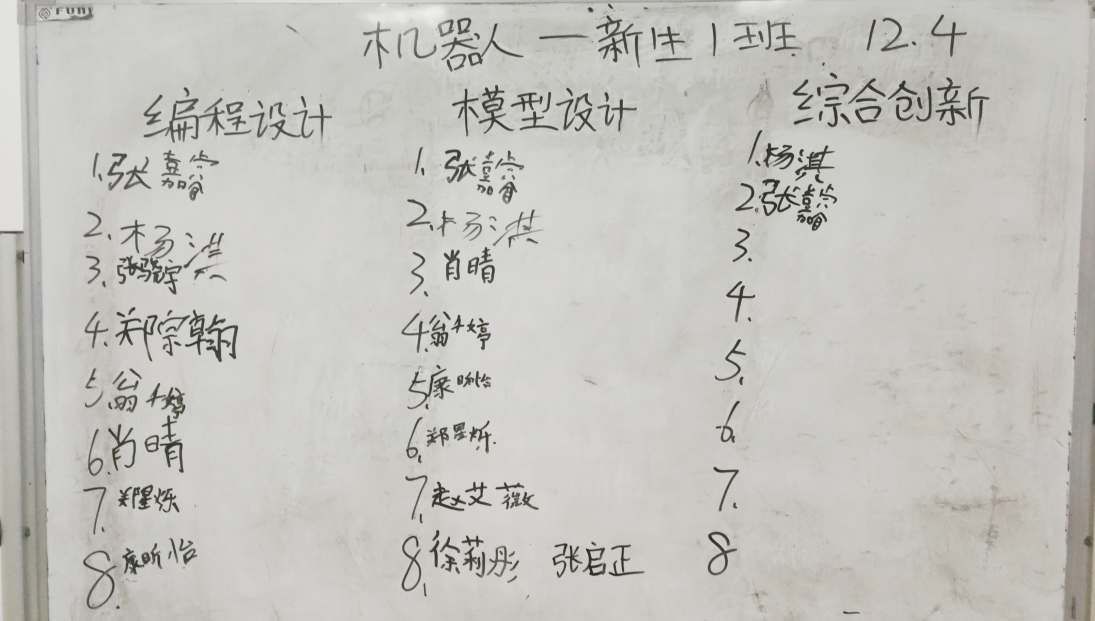 FUNI
机器人一新生1班 12.4
编程设计
1.张嘉睿
2.杨淇
3.张骆宇
4.郑宗翰
5.翁千婷
6.肖晴
7.郑星烁
8.康昕怡
模型设计
1.张嘉睿
2.杨淇
3.肖晴
4.翁千婷
5.康昕怡
6.郑星烁.
7.赵艾薇
8.徐莉彤 张启正
综合创新
1.杨淇
2.张嘉睿
3.
4.
5.
6.
7.
8